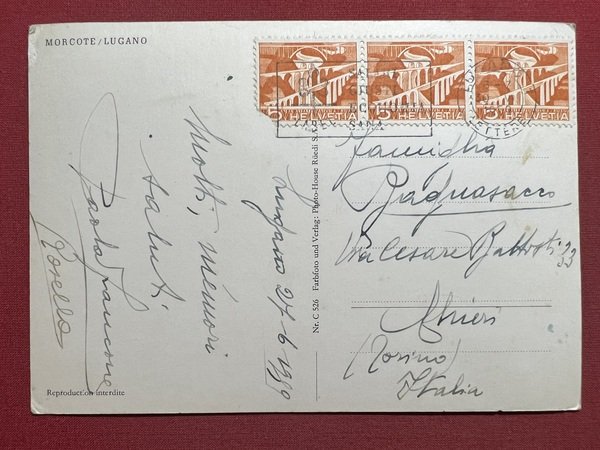 MORCOTE/LUGANO
5 HELVETIA
5 HELVETIA
5 HELVETIA
LETTERE
Molti, memori
saluti
Paola Francone
Rosella
Lugano 27-6 1959
Nr. C 526 Farbfoto und Verlag: Photo-House Rüedi S.A.
Famiglia
Bagnasacco
Via Cesare Battisti 33
Chieri
(Torino)
Italia
Reproduction interdite